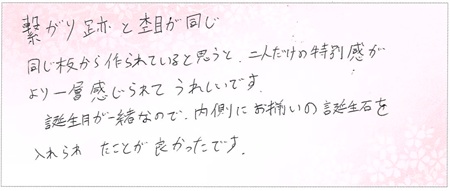 繋がり跡と杢目が同じ
同じ板から作られていると思うと、二人だけの特別感が
より一層感じられて うれしいです.
誕生月が一緒なので、内側にお揃いの誕生石を
入れられ たことが良かったです.